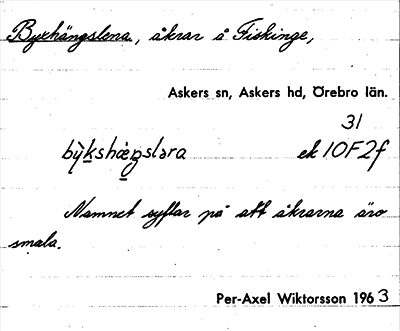 Byxhängslena, åkrar å Fiskinge,
Askers sn, Askers hd, Örebro län.
31
bỳkshæŋsləra ek 10F2f
Namnet syftar på att åkrarna äro
smala.
Per-Axel Wiktorsson 1963